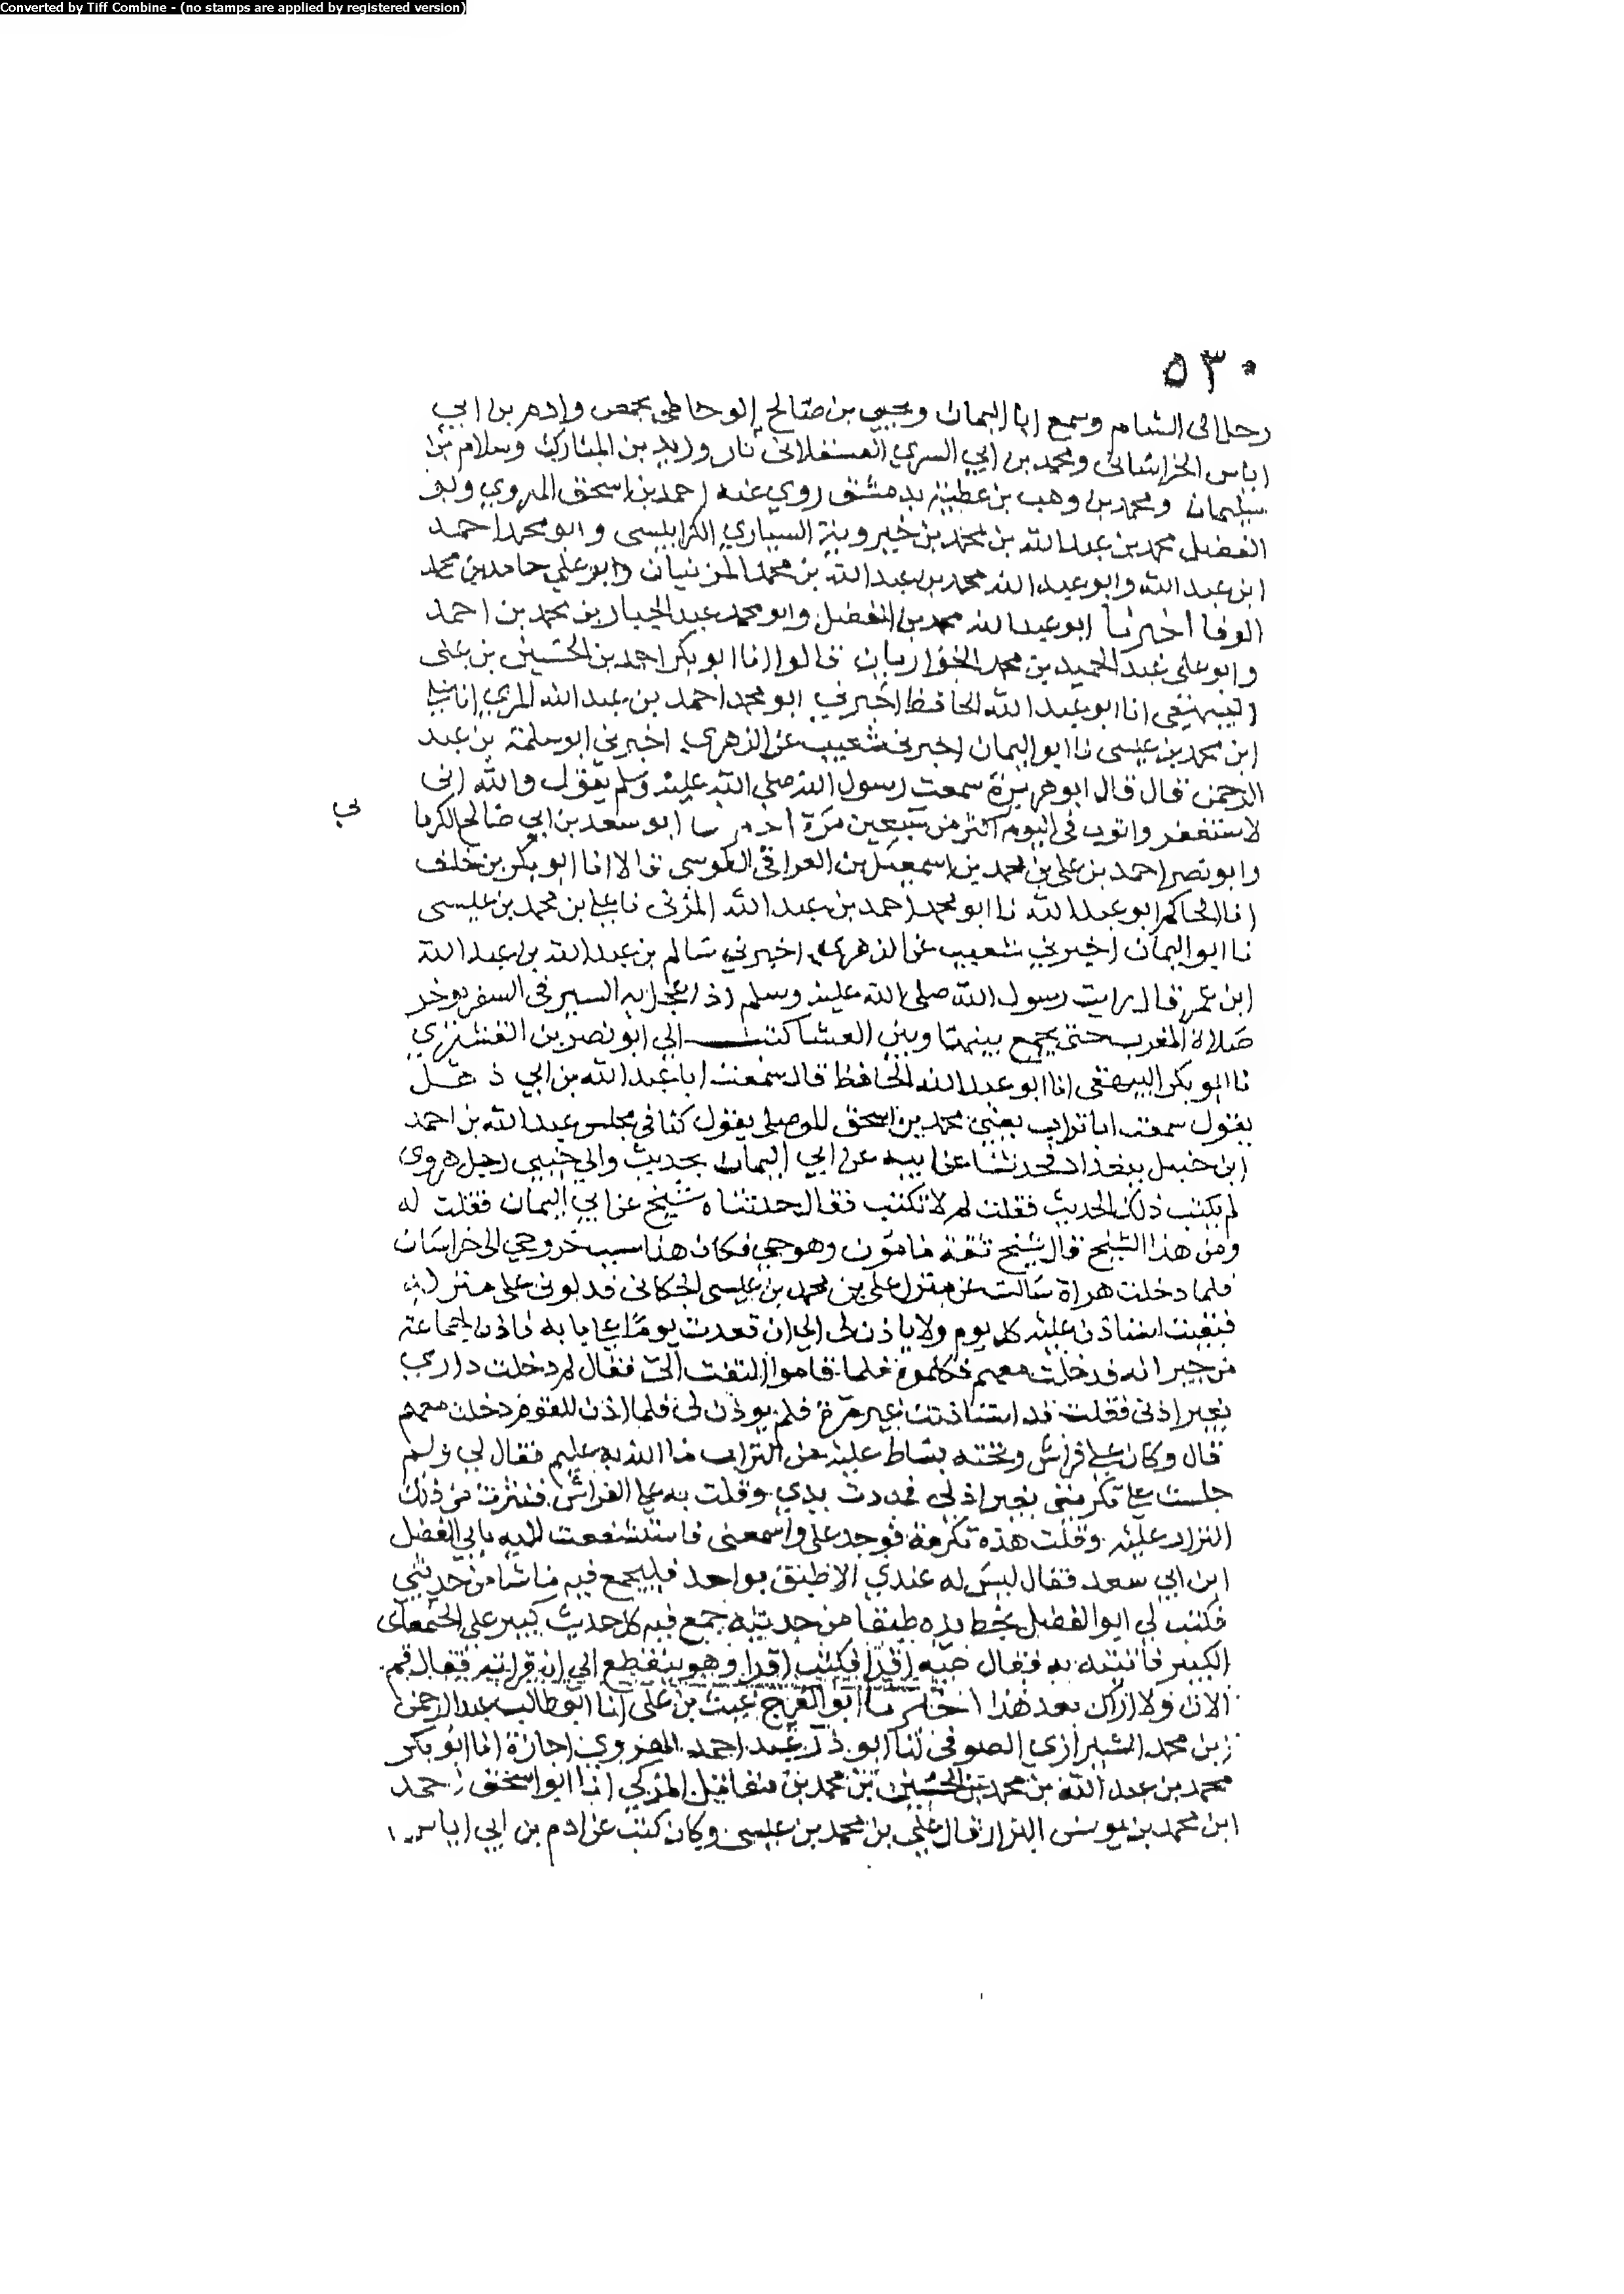 Converted by Tiff Combine - (no stamps are applied by registered version)
٥٣٠
رحل الى الشام وسمع ابا اليمان ويحيى بن صالح الوحاظي بحمص وادم بن ابي
اياس الخراساني ومحمد بن ابي السري العسقلاني بن المبارك وسلام بن
سليمان ومحمد بن وهب بن عطية بدمشق روي عنه احمد بن اسحق الهروي وابو
الفضل محمد بن عبد الله بن محمد بن خميرويه السياري الكرابيسى وابو محمد احمد
ابن عبد الله وابو عبد الله محمد بن عبد الله بن محمد المزنيان وابو علي حامد بن محمد
الرفا اخبرنا ابو عبد الله محمد بن الفضل وابو محمد عبد الجبار بن محمد بن احمد
وابو على عبد الحميد بن محمد الخواريان قالوا انا ابو بكر احمد بن الحسين بن على
البيهقي انا ابو عبد الله الحافظ اخبرني ابو محمد احمد بن عبد الله المزني انا علي
ابن محمد بن عيسى نا ابو اليمان اخبرنى شعيب عن الزهري اخبرني ابو سلمة بن عبد
الرحمن قال قال ابو هريرة سمعت رسول الله صلى الله عليه وسلم يقول والله انى
لاستغفر واتوب فى اليوم اكثر من سبعين مرة اخبرنا ابو سعد بن ابي صالح الكرما
ني
وابو نصر احمد بن على بن محمد بن اسمعيل بن العراقي الطوسي قالا انا ابو بكر بن خلف
انا الحاكم ابو عبد الله نا ابو محمد احمد بن عبد الله المزنى نا علي بن محمد بن عيسى
نا ابو اليمان اخبرني شعيب عن الزهري اخبرني سالم بن عبد الله بن عبد الله
ابن عمر قال رايت رسول الله صلى الله عليه وسلم اذا عجل به السير فى السفر يوخر
صلاة المغرب حتى يجمع بينها وبين العشا كتب الي ابو نصر بن القشيري
نا ابو بكر البيهقى انا ابو عبد الله الحافظ قال سمعت ابا عبد الله بن ابي ذهل
يقول سمعت ابا تراب يعني محمد بن اسحق الموصلي يقول كنا في مجلس عبد الله بن احمد
ابن حنبل ببغداد فحدثنا عن ابيه عن ابي اليمان بحديث والي جنبي رجل هروي
لم يكتب ذلك الحديث فقلت لم لا تكتب فقال حدثناه شيخ عن ابي اليمان فقلت له
ومن هذا الشيخ قال شيخ ثقة مامون وهو حي فكان هذا سبب خروجي الى خراسان
فلما دخلت هراة سالت عن منزل على بن محمد بن عيسى الجكانى فدلونى على منزله
فبقيت استاذن عليه كل يوم ولا ياذن لى الي ان قعدت يوما علي بابه فاذن لجماعة
من جيرانه فدخلت معهم فكلموه فلما قاموا التفت الى فقال لم دخلت داري
بغير اذنى فقلت قد استاذنت غير مرة فلم يوذن لى فلما اذن للقوم دخلت معهم
قال وكان علي فراش وتحته بساط عليه من التراب ما الله به عليم فقال لي ولم
جلست علي تكرمتى بغير اذنى فمددت يدي وقلت به علي الفراش فنثرت من ذلك
التراب عليه وقلت هذه تكرمة فوجد على واسمعنى فاستشفعت اليه بابي الفضل
ابن ابي سعد فقال ليس له عندي الا طبق واحد فليجمع فيه ما شا من حديثي
فكتب لي ابو الفضل بخط يده طبقا من حديثه جمع فيه كل حديث كبير على
الكبير فاتيته به فقال اقرا فكنت اقرا وهو يتقطع الي ان قراته فقال قم
الان ولا اراك بعد هذا اخبرنا ابو الفرج غيث بن على انا ابو طالب عبد الرحمن
بن محمد الشيرازي الصوفى انا ابو ذر عبد احمد الهروي اجازة انا ابو بكر
محمد بن عبد الله بن محمد بن الحسين بن محمد بن المزكي انا ابو اسحق احمد
ابن محمد بن يونس البزاز قال علي بن محمد بن عيسى وكان كتب عن ادم بن ابي اياس